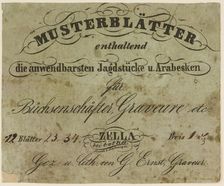 MUSTERBLÄTTER
enthaltend
die anwendbarsten Jagdstücke u. Arabesken
für
Büchsenschäfter, Graveure etc.
12 Blätter 23. 34. ZELLA Preis 1
Gez. u. lith. von G. Ernst, Graveur.